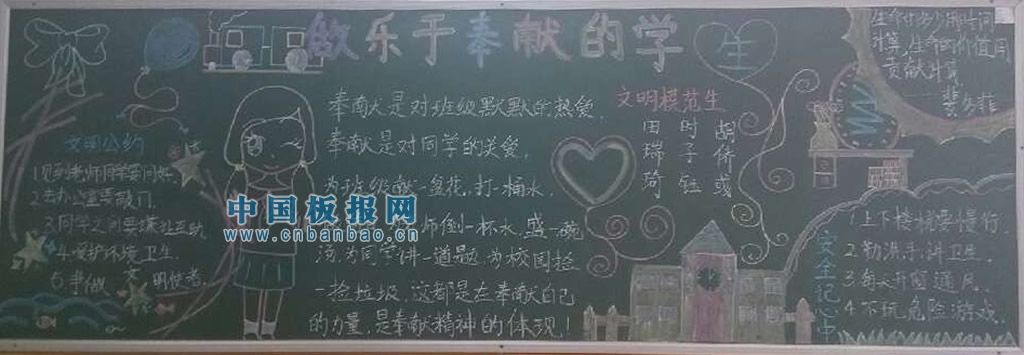 做乐于奉献的学生
文明公约
1.见到老师同学要问好.
2.去办公室要敲门.
3.同学之间要礼让互助
4.爱护环境卫生.
5.争做文明使者.
中国板报网
www.cnbanbao.cn
奉献是对班级默默的热爱.
奉献是对同学的关爱.
为班级献一盆花,打一桶水.
师倒一杯水,盛一碗
汤,为同学讲一道题,为校园捡
一捡垃圾,这都是在奉献自己
的力量,是奉献精神的体现!
文明模范生
田瑞琦
时子钰
胡倚
生命
时间
计算,生命的价值用
贡献计算
——裴多菲
安全记心中
1.上下楼梯要慢行.
2.勤洗手,讲卫生.
3.每天开窗通风.
4.不玩危险游戏.